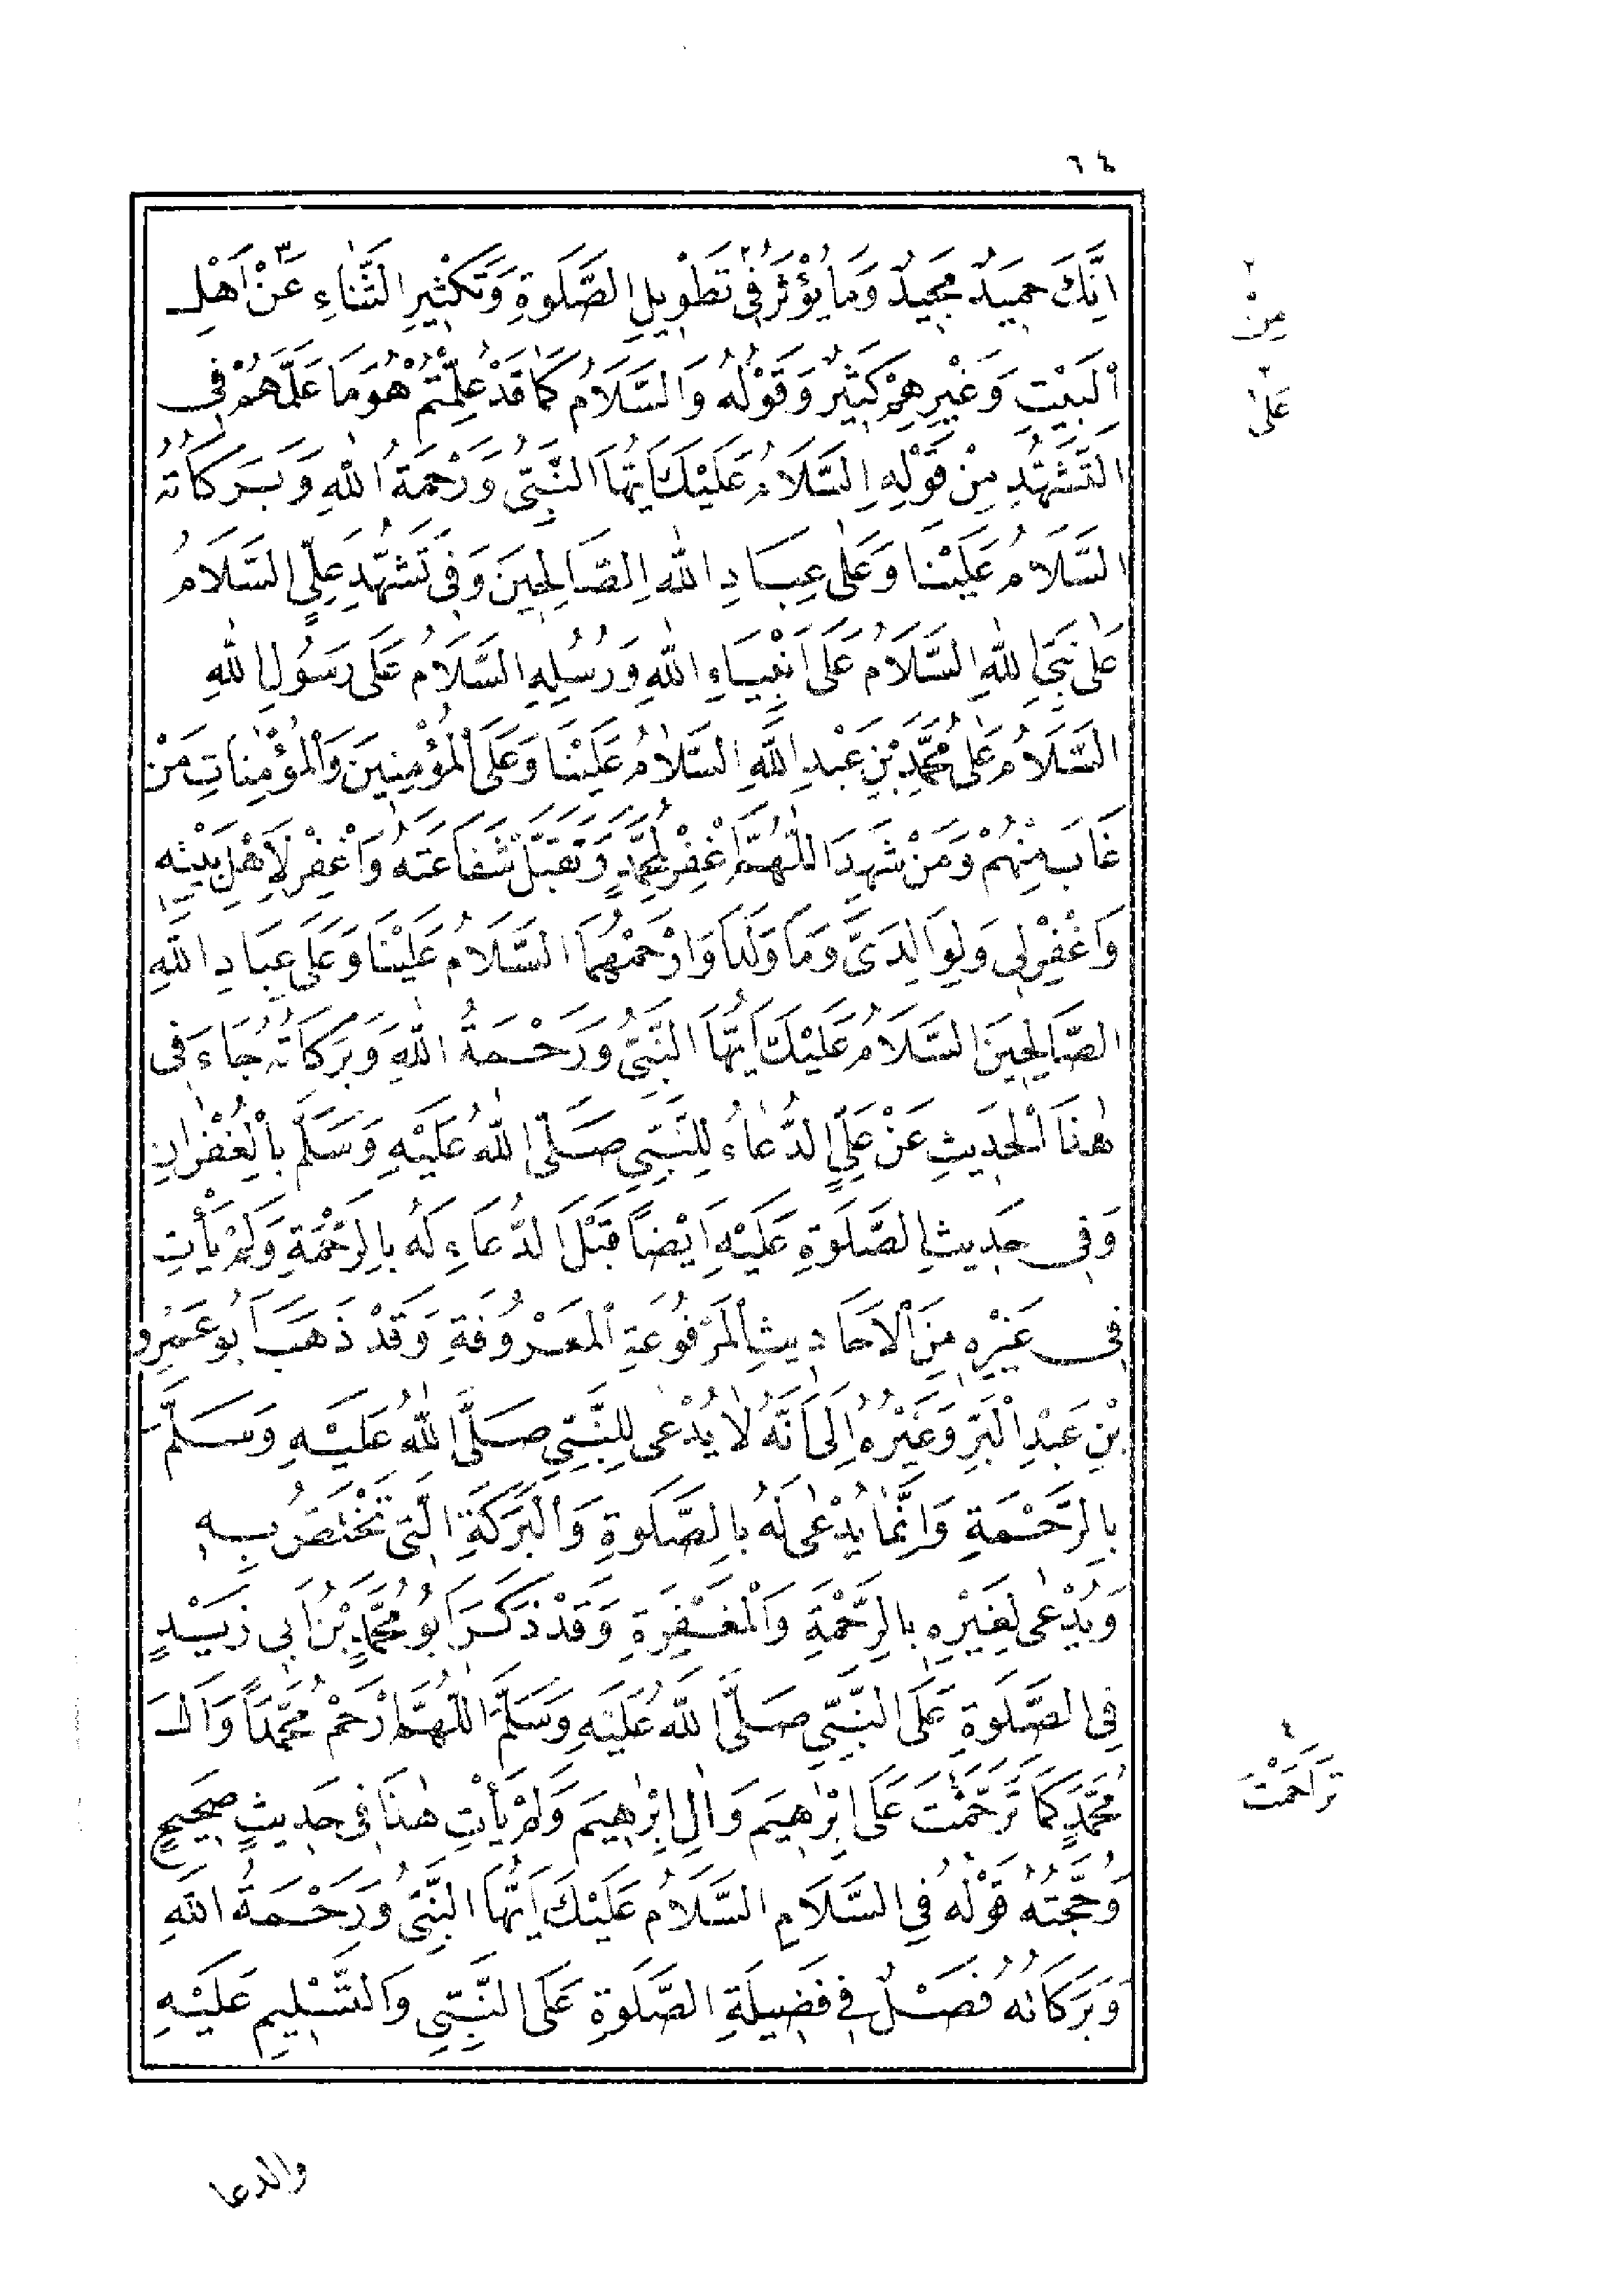 ٦٤
اِنَّكَ حَمِيدٌ مَجِيدٌ وَمَا يُؤْثَرُ فِي٢ تَطْوِيلِ الصَّلٰوةِ وَتَكْثِيرِ الثَّنَاءِ عَنْ٣ اَهْلِ
الْبَيْتِ وَغَيْرِهِمْ كَثِيرٌ وَقَوْلُهُ وَالسَّلَامُ كَمَا قَدْ عُلِّمْتُمْ هُوَ مَا عَلَّمَهُمْ فِى
التَّشَهُّدِ مِنْ قَوْلِهِ السَّلَامُ عَلَيْكَ اَيُّهَا النَّبِىُّ وَرَحْمَةُ اللّٰهِ وَبَرَكَاتُهُ
السَّلَامُ عَلَيْنَا وَعَلٰى عِبَادِ اللّٰهِ الصَّالِحِينَ وَفِى تَشَهُّدِ عَلِيٍّ السَّلَامُ
عَلٰى نَبِىِّ اللّٰهِ السَّلَامُ عَلٰى اَنْبِيَاءِ اللّٰهِ وَرُسُلِهِ السَّلَامُ عَلٰى رَسُولِ اللّٰهِ
السَّلَامُ عَلٰى مُحَمَّدِ بْنِ عَبْدِ اللّٰهِ السَّلَامُ عَلَيْنَا وَعَلَى الْمُؤْمِنِينَ وَالْمُؤْمِنَاتِ مَنْ
غَابَ مِنْهُمْ وَمَنْ شَهِدَ اللّٰهُمَّ اغْفِرْ لِمُحَمَّدٍ وَتَقَبَّلْ شَفَاعَتَهُ وَاغْفِرْ لِاَهْلِ بَيْتِهِ
وَاغْفِرْ لِى وَلِوَالِدَىَّ وَمَا وَلَدَا وَارْحَمْهُمَا السَّلَامُ عَلَيْنَا وَعَلٰى عِبَادِ اللّٰهِ
الصَّالِحِينَ السَّلَامُ عَلَيْكَ اَيُّهَا النَّبِىُّ وَرَحْمَةُ اللّٰهِ وَبَرَكَاتُهُ جَاءَ فِى
هٰذَا الْحَدِيثِ عَنْ عَلِيٍّ الدُّعَاءُ لِلنَّبِىِّ صَلَّى اللّٰهُ عَلَيْهِ وَسَلَّمَ بِالْغُفْرَانِ
وَفِى حَدِيثِ الصَّلٰوةِ عَلَيْهِ اَيْضًا قَبْلَ الدُّعَاءِ لَهُ بِالرَّحْمَةِ وَلَمْ يَأْتِ
فِى غَيْرِهِ مِنَ الْاَحَادِيثِ الْمَرْفُوعَةِ الْمَعْرُوفَةِ وَقَدْ ذَهَبَ اَبُو عَمْرِو
بْنِ عَبْدِ الْبَرِّ وَغَيْرُهُ اِلٰى اَنَّهُ لَا يُدْعٰى لِلنَّبِىِّ صَلَّى اللّٰهُ عَلَيْهِ وَسَلَّمَ
بِالرَّحْمَةِ وَاِنَّمَا يُدْعٰى لَهُ بِالصَّلٰوةِ وَالْبَرَكَةِ الَّتِى تَخْتَصُّ بِهِ
وَيُدْعٰى لِغَيْرِهِ بِالرَّحْمَةِ وَالْمَغْفِرَةِ وَقَدْ ذَكَرَ اَبُو مُحَمَّدِ بْنُ اَبِى زَيْدٍ
فِى الصَّلٰوةِ عَلَى النَّبِىِّ صَلَّى اللّٰهُ عَلَيْهِ وَسَلَّمَ اللّٰهُمَّ ارْحَمْ مُحَمَّدًا وَاٰلَ
مُحَمَّدٍ كَمَا تَرَحَّمْتَ٤ عَلٰى اِبْرٰهِيمَ وَاٰلِ اِبْرٰهِيمَ وَلَمْ يَأْتِ هٰذَا فِى حَدِيثٍ صَحِيحٍ
وَحُجَّتُهُ قَوْلُهُ فِى السَّلَامِ السَّلَامُ عَلَيْكَ اَيُّهَا النَّبِىُّ وَرَحْمَةُ اللّٰهِ
وَبَرَكَاتُهُ فَصْلٌ فِى فَضِيلَةِ الصَّلٰوةِ عَلَى النَّبِىِّ وَالتَّسْلِيمِ عَلَيْهِ
٢
مِنْ
عَلٰى
٤
تَرَاحَمْتَ
والدعا